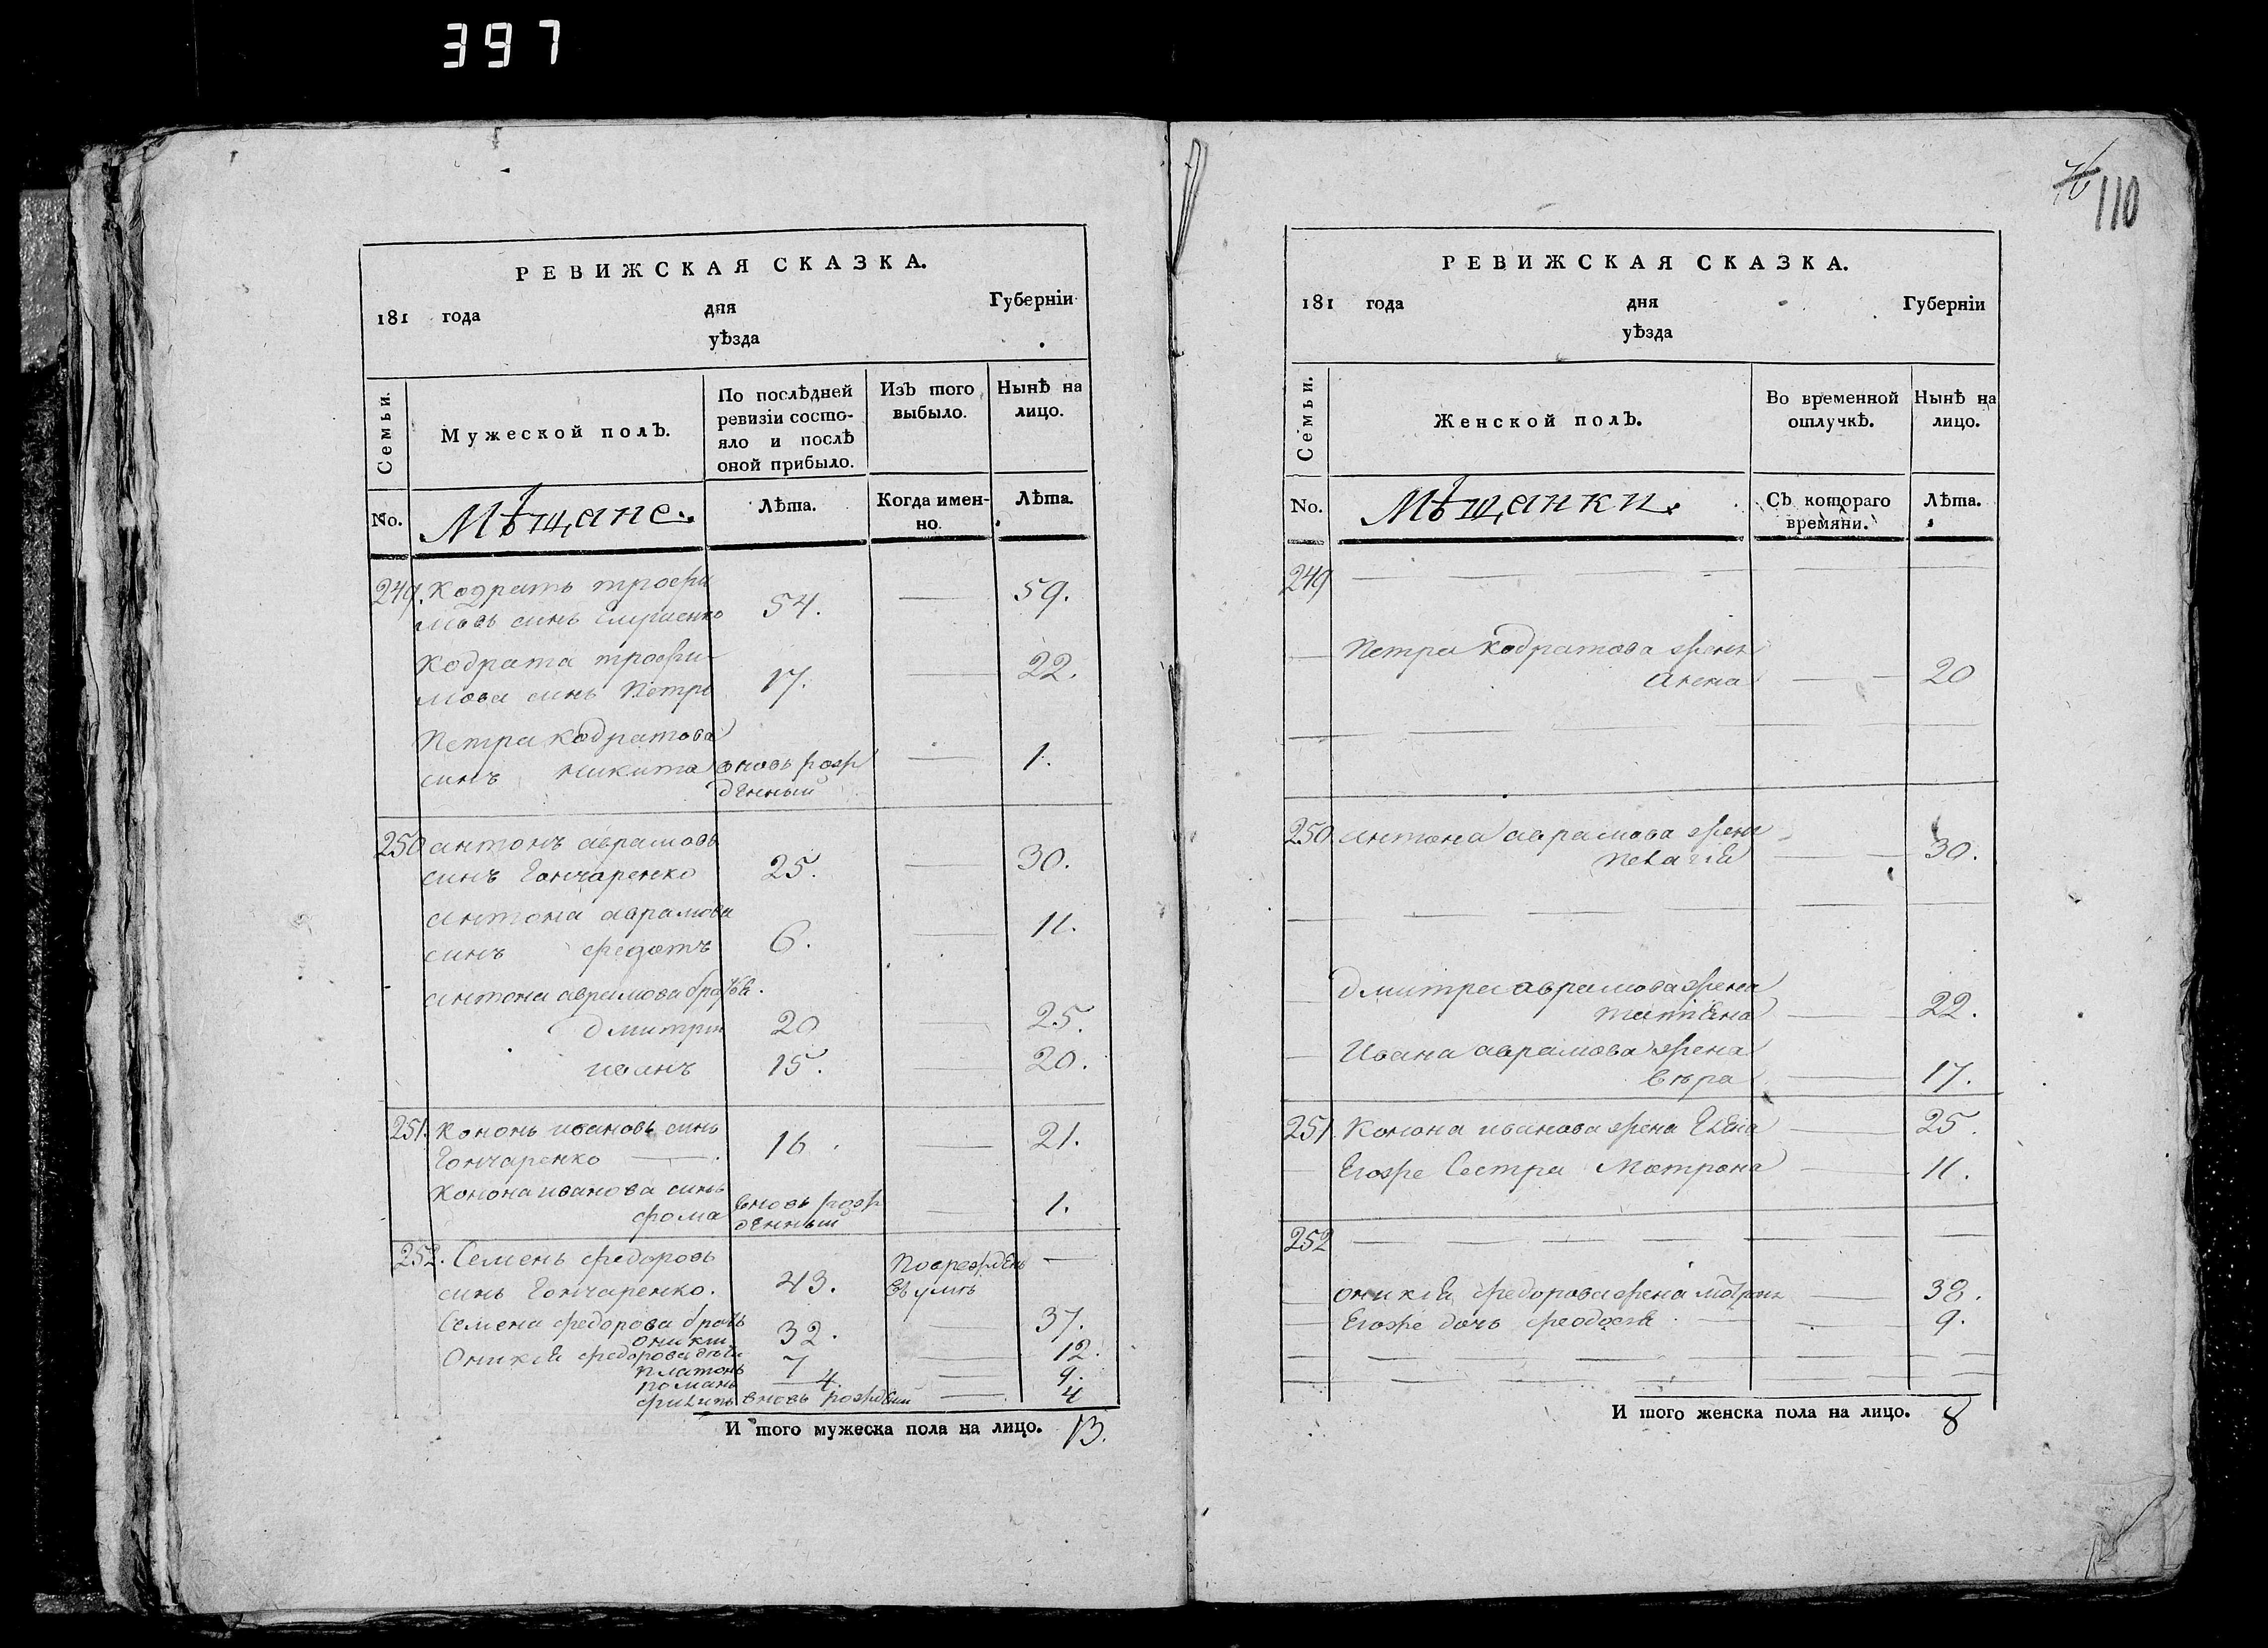 397
РЕВИЖСКАЯ СКАЗКА.
181 года дня Губерніи
уѣзда
Семьи.
Мужеской полъ.
По послѣдней ревизіи состо-
яло и послѣ оной прибыло.
Изъ того выбыло.
Нынѣ на лицо.
No. Мѣщане. Лѣта. Когда имен-
но. Лѣта.
249. Кодратъ трофи
мовъ синъ 54. — 59.
Кодрата трофи-
мова синъ Петръ 17. — 22.
Петра кодратова
синъ никита вновь рожденный — 1.
250 антонъ аврамовъ
синъ Гончаренко 25. — 30.
антона аврамова
синъ федотъ 6. — 11.
антона аврамова братья.
дмитрій 20 25.
иванъ 15. — 20.
251. Кононъ ивановъ синъ
Гончаренко — 16. — 21.
Конона иванова синъ
фома вновь рожденный — 1.
252. Семенъ федоровъ
синъ Гончаренко. 43. Поврежденъ въ умѣ —
Семена федорова братъ
оникій 32. — 37.
Оникія федорова дѣти
платонъ 7 — 12.
романъ — 4. — 9.
филипъ вновь рожденій — 4
И того мужеска пола на лицо. 13.
76 110
РЕВИЖСКАЯ СКАЗКА.
181 года дня Губерніи
уѣзда
Семьи.
Женской полъ.
Во временной отлучкѣ.
Нынѣ на лицо.
No. Мѣщанки. Съ котораго
времяни. Лѣта.
249 — — — —
— Петра кодратова жена
— — 20
— — — —
250. антона аврамова жена
пелагія — — 30.
— — — —
— дмитрея аврамова жена
татіана — 22.
— Ивана аврамова жена
вѣра — 17.
251 Конона иванова жена Елена — 25.
— Егоже Сестра Матрона — 11.
252 — — — —
— оникія федорова жена матрона — 38.
— Егоже дочь феодосія — — 9.
— — — —
— — — —
И того женска пола на лицо. 8